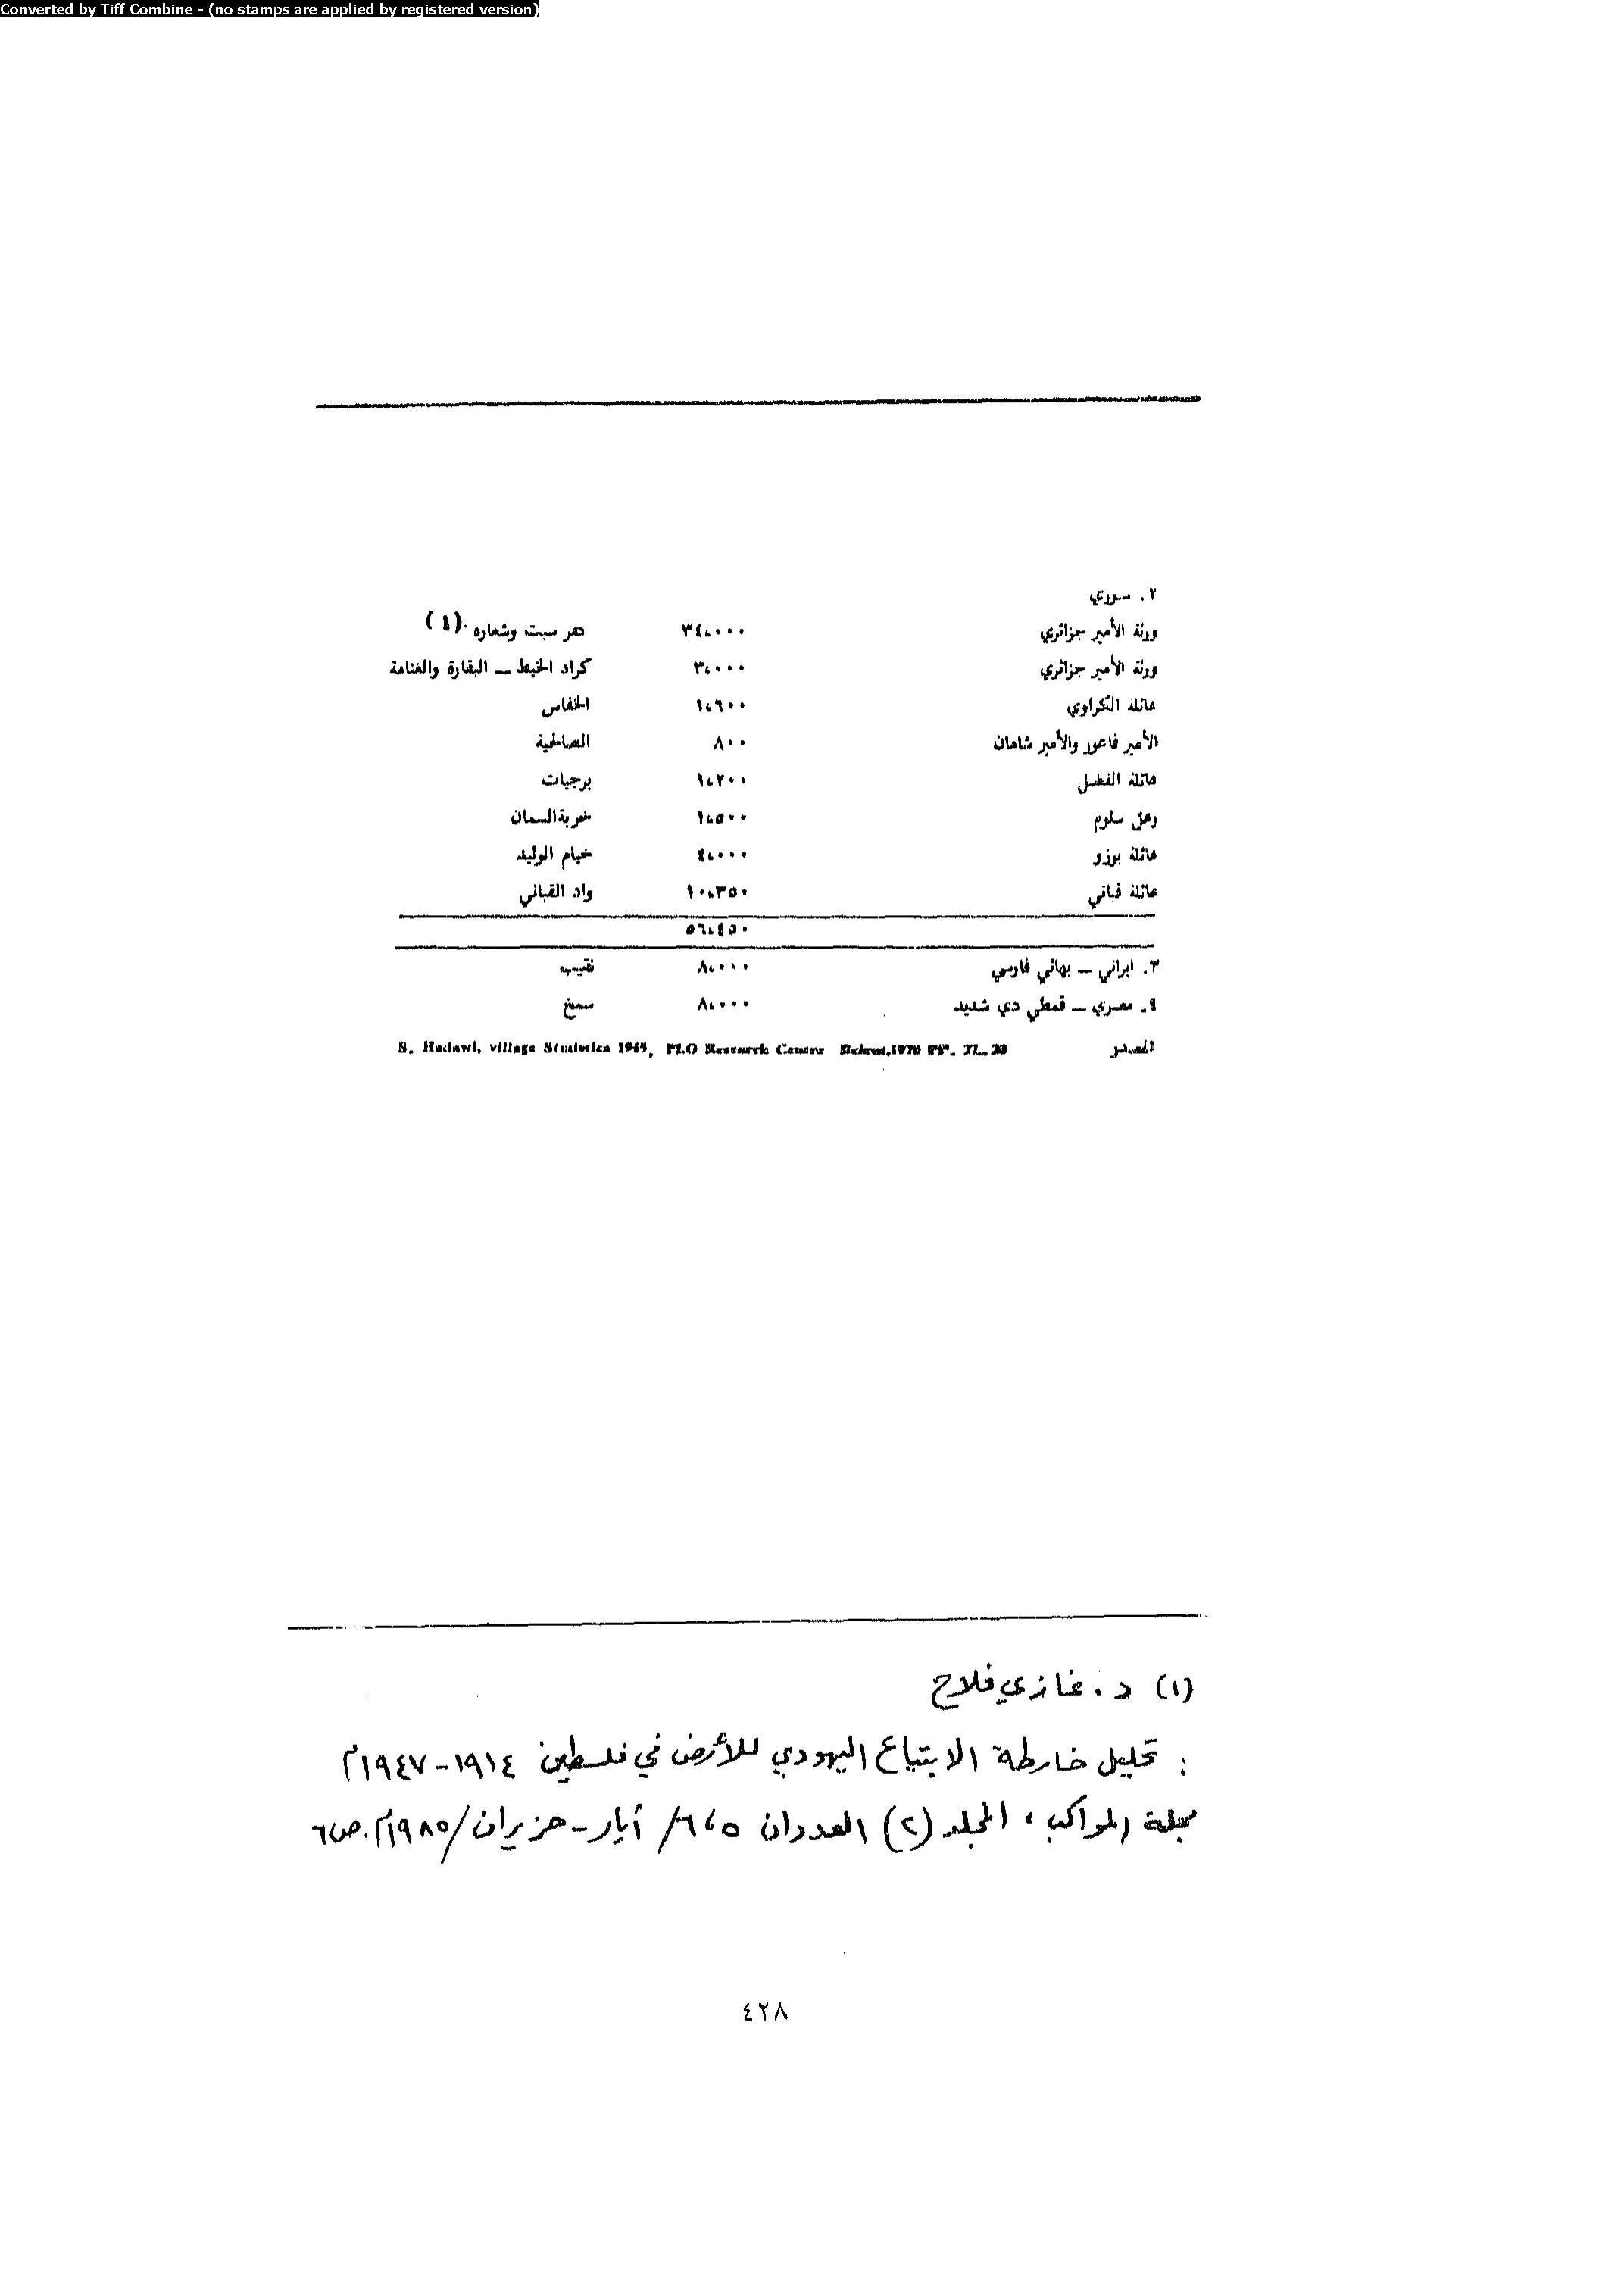 Converted by Tiff Combine - (no stamps are applied by registered version)
٢. سوري
ورثة الأمير جزائري ٣٤،٠٠٠ كفر سبت وشعاره (١)
ورثة الأمير جزائري ٣،٠٠٠ كراد الخيط – البقارة والغنامة
عائلة التكراوي ١،٦٠٠ الخفاس
الأمير فاعور والأمير شاهان ٨٠٠ الصالحية
عائلة الفضل ١،٢٠٠ برجيات
وعل سلوم ١،٥٠٠ خربة السمان
عائلة بوزو ٤،٠٠٠ خيام الوليد
عائلة قباني ١٠،٣٥٠ واد القباني
٥٦،٤٥٠
٣. ايراني – بهائي فارسي ٨،٠٠٠ نقيب
٤. مصري – قمطي دي شديد ٨،٠٠٠ سمخ
المصدر S. Hadawi, village Statistics 1945, PLO Research Centre Beirut,1970 PP.
(١) د. غازي فلاح
: تحليل خارطة الابتياع اليهودي للأرض في فلسطين ١٩١٤-١٩٤٧م
مجلة المواكب، المجلد (٢) العددان ٥،٦/ أيار-حزيران/١٩٨٥م. ص٦
٤٢٨